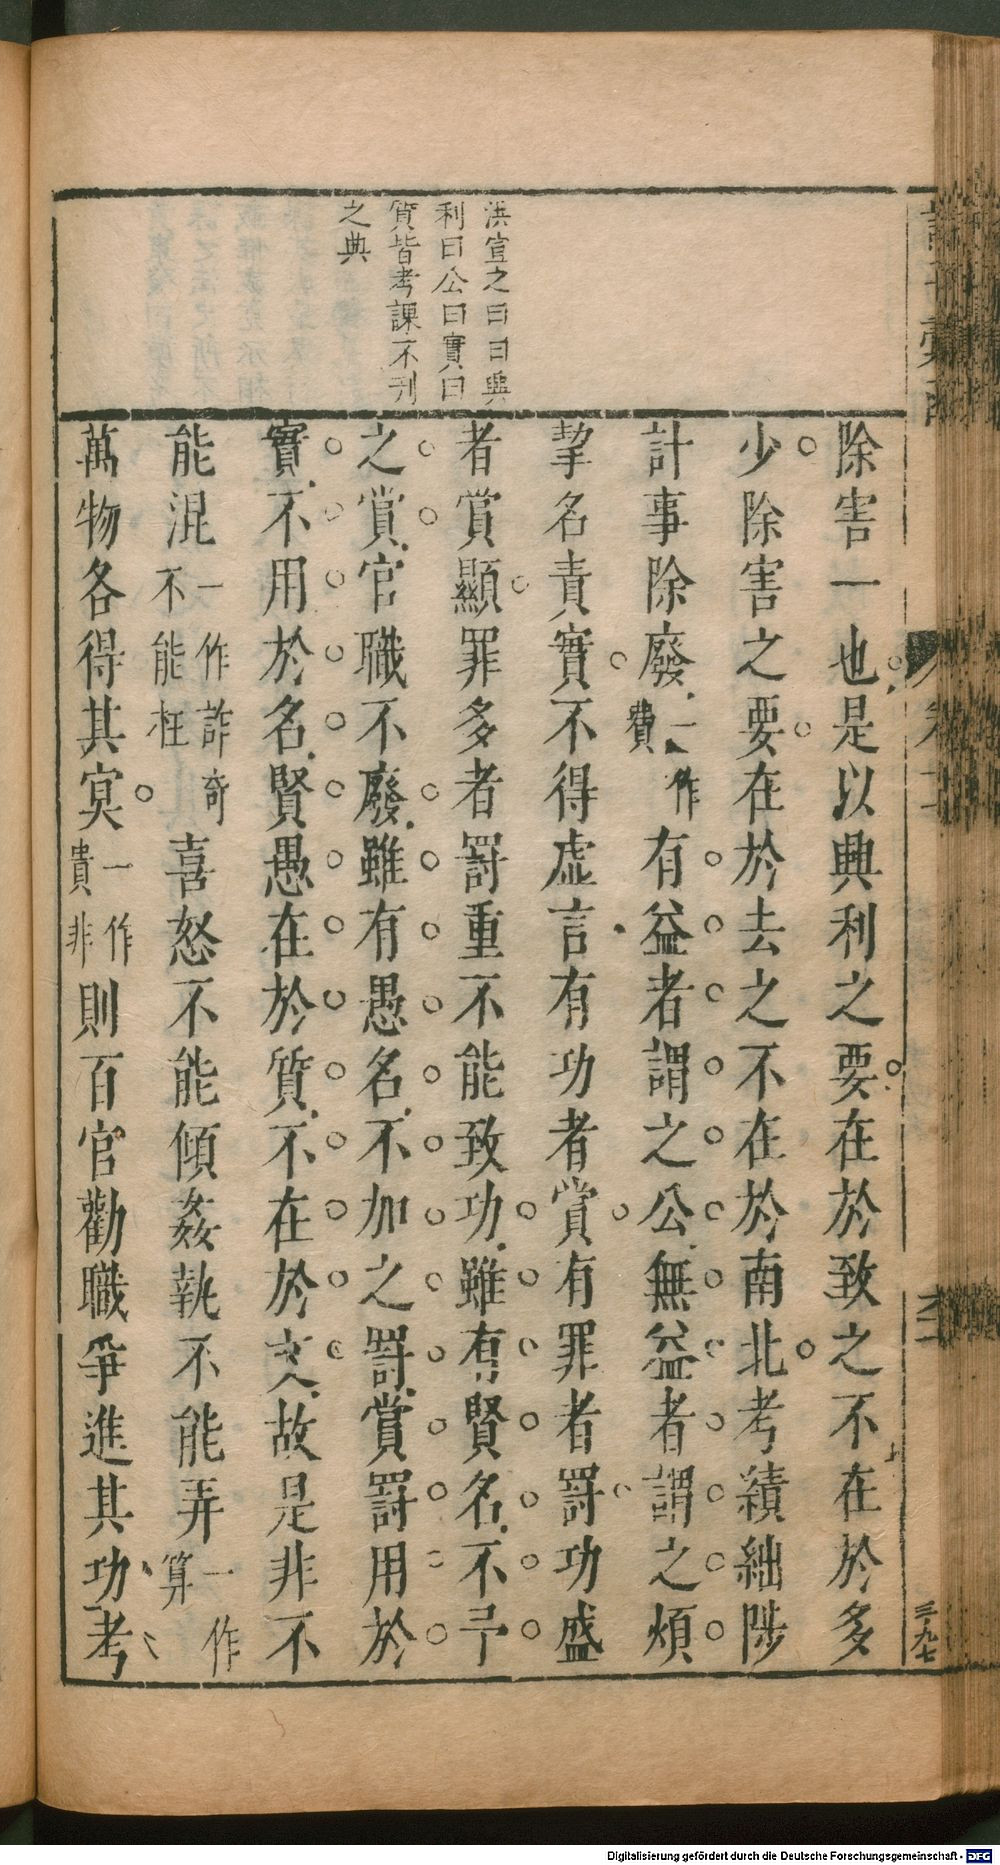 洪宣之曰曰興
利曰公曰實曰
質皆考課不刋
之典
除害一也是以興利之要在於致之不在於多
少除害之要在於去之不在於南北考績絀陟
計事除廢一作費有益者謂之公無益者謂之煩
挈名責實不得虛言有功者賞有罪者罸功盛
者賞顯罪多者罸重不能致功雖有賢名不予
之賞官職不廢雖有愚名不加之罸賞罸用於
實不用於名賢愚在於質不在於文故是非不
能混一作詐奇不能枉喜怒不能傾姦執不能弄一作算
萬物各得其冥一作貴非則百官勸職爭進其功考
三九七
Digitalisierung gefördert durch die Deutsche Forschungsgemeinschaft - DFG